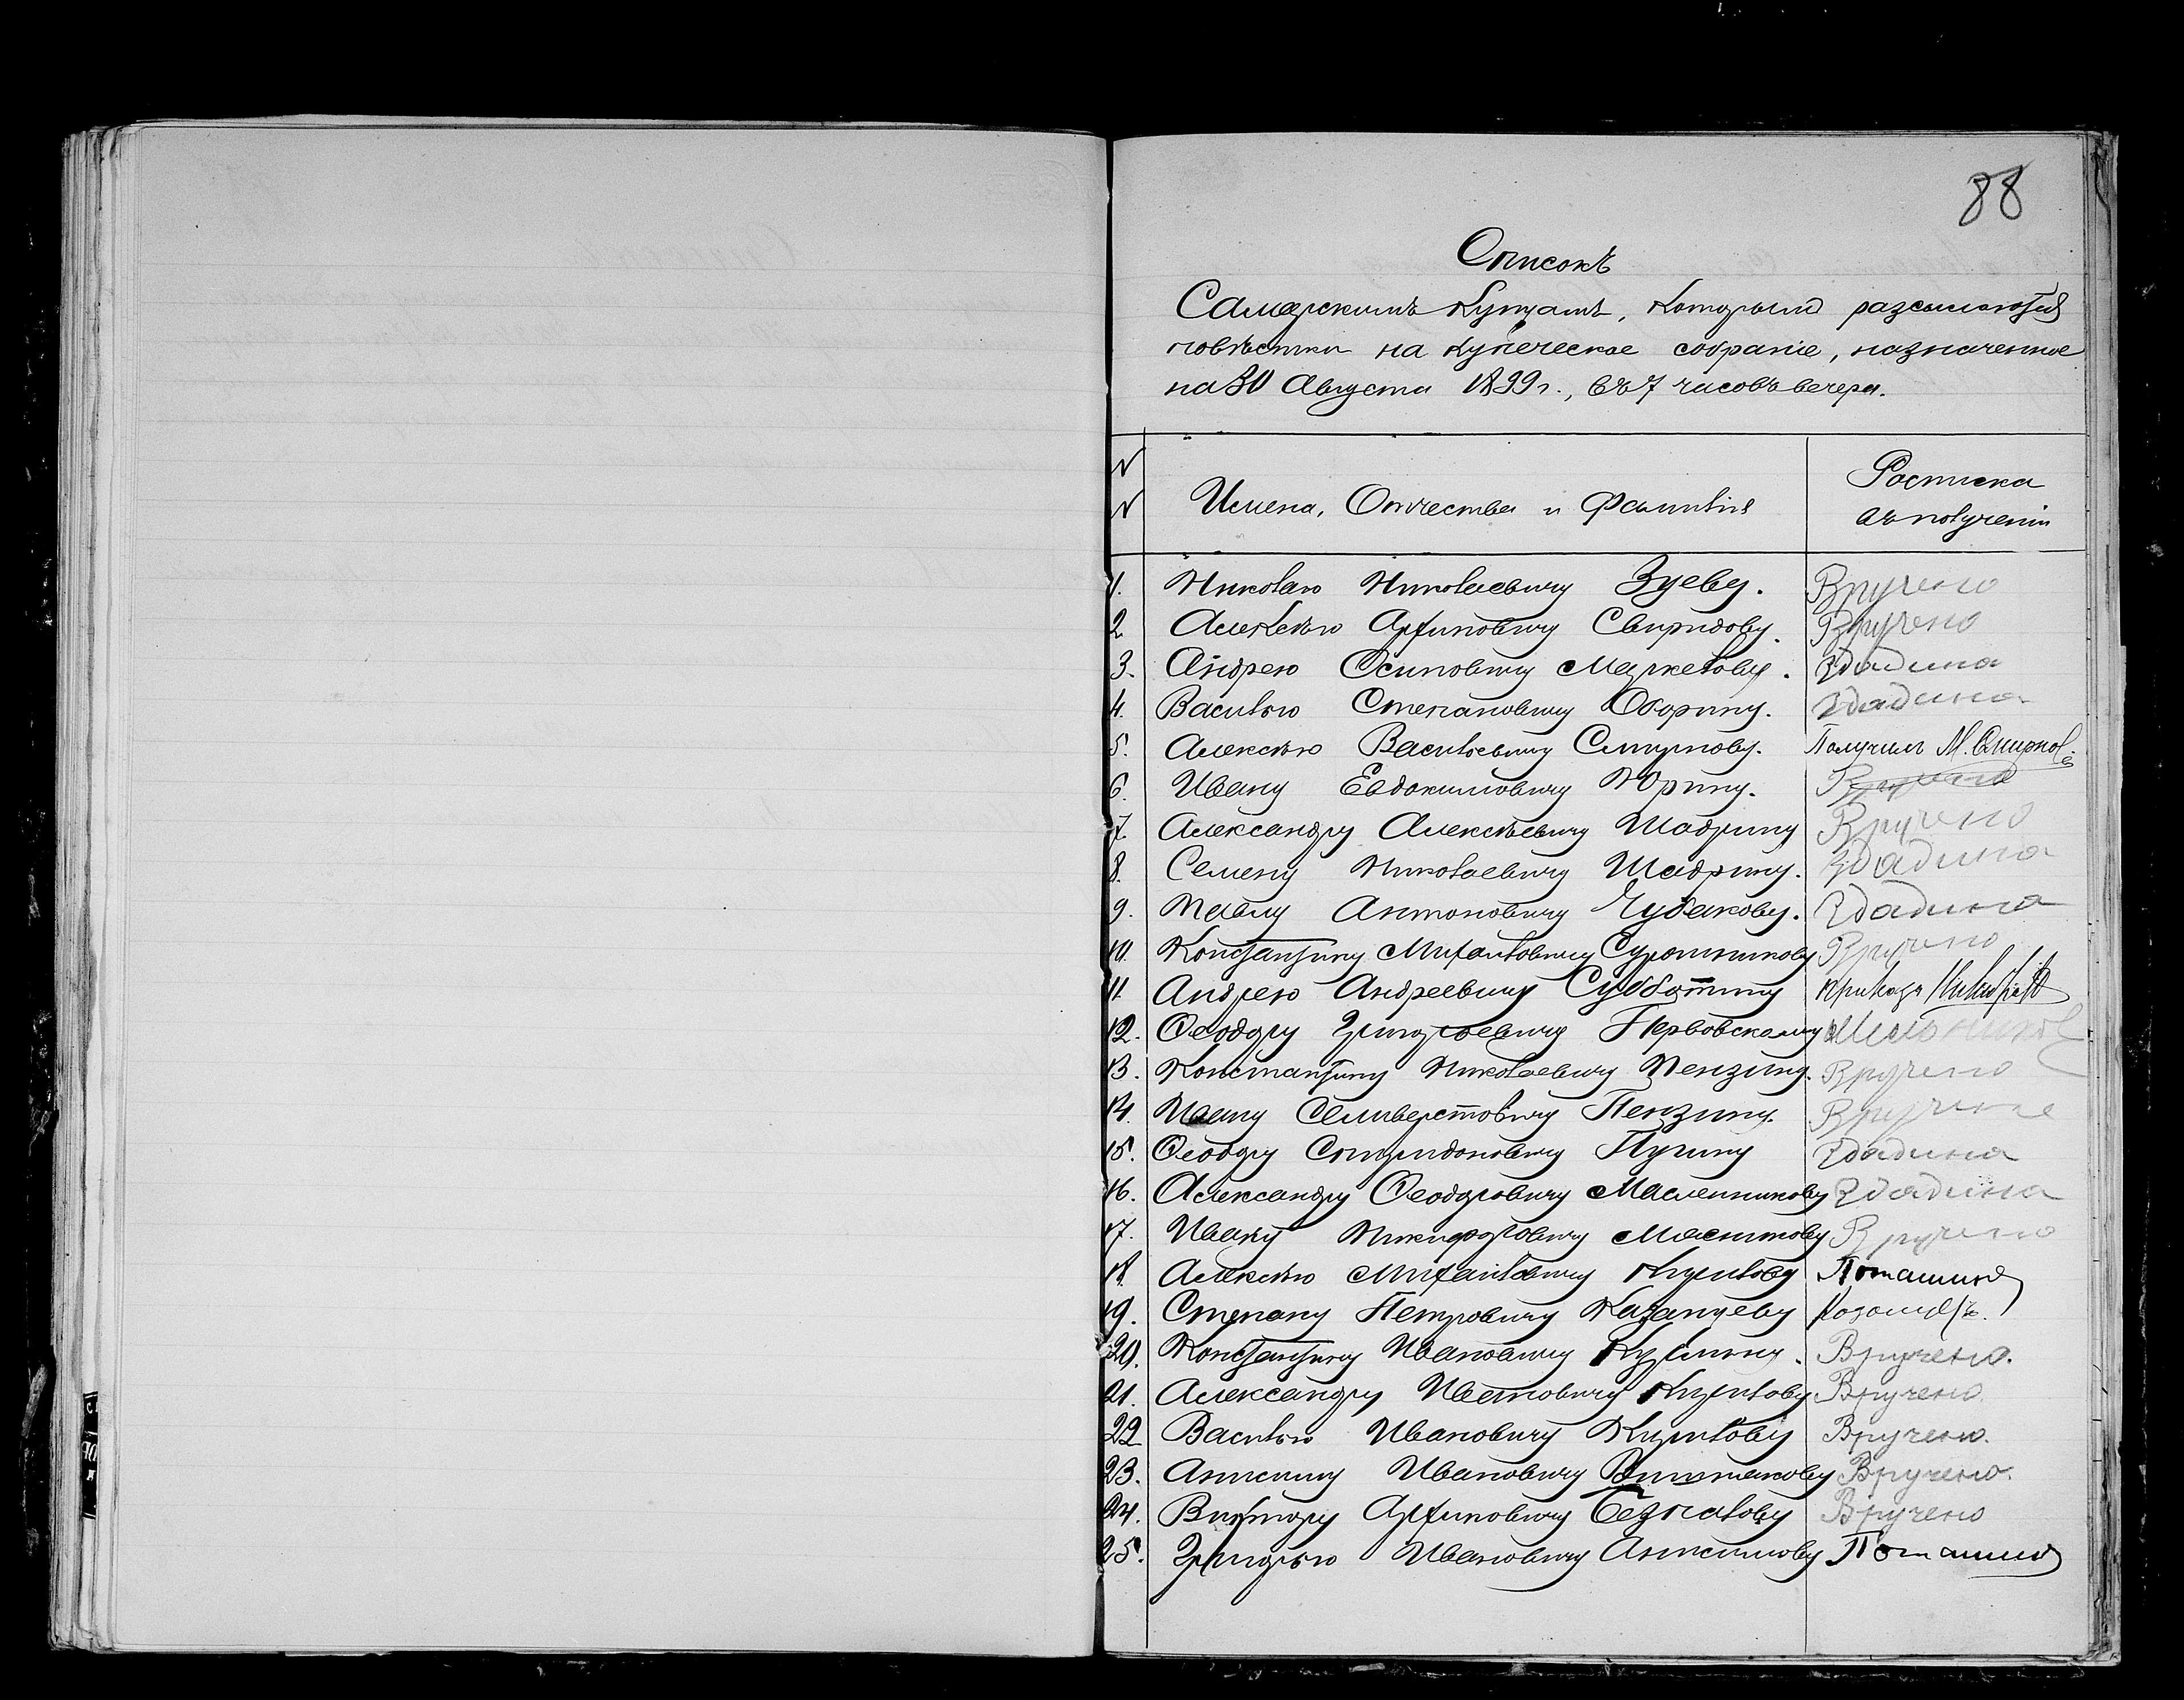 88
Списокъ
Самарскимъ Купцамъ, которымъ разсылаются
повѣстки на купеческое собраніе, назначенное
на 30 Августа 1899 г., въ 7 часовъ вечера.
№ № Имена, Отчества и Фамиліи Росписка въ полученіи
1. Николаю Николаевичу Зуеву. Вручено
2. Алексѣю Архиповичу Свиридову. Вручено
3. Андрею Осиповичу Маркелову. Здадина
4. Василью Степановичу Оборину. Здадина
5. Алексѣю Васильевичу Смирнову. Получилъ М. Смирнов
6. Ивану Евдокимовичу Юрину. Вручено
7. Александру Алексѣевичу Шадрину Вручено
8. Семену Николаевичу Шадрину. Здадина
9. Павлу Антоновичу Чудакову. Здадина
10. Константину Михаиловичу Сурошникову Вручено
11. Андрею Андреевичу Субботину
12. Ѳеодору Григорьевичу Первовскому
13. Константину Николаевичу Пензину. Вручено
14. Ивану Селиверстовичу Пензину. Вручено
15. Ѳеодору Спиридоновичу Пугину Здадина
16. Александру Ѳеодоровичу Масленникову Здадина
17. Ивану Никифоровичу Масликову Вручено
18. Алексѣю Михаиловичу Курлову
19. Степану Петровичу Казанцеву
20. Константину Ивановичу Кузмину. Вручено.
21. Александру Ивановичу Кирилову Вручено.
22. Василью Ивановичу Кирилову Вручено.
23. Антипу Ивановичу Вишнякову Вручено.
24. Виктору Архиповичу Безпалову Вручено
25. Григорью Ивановичу Анисимову